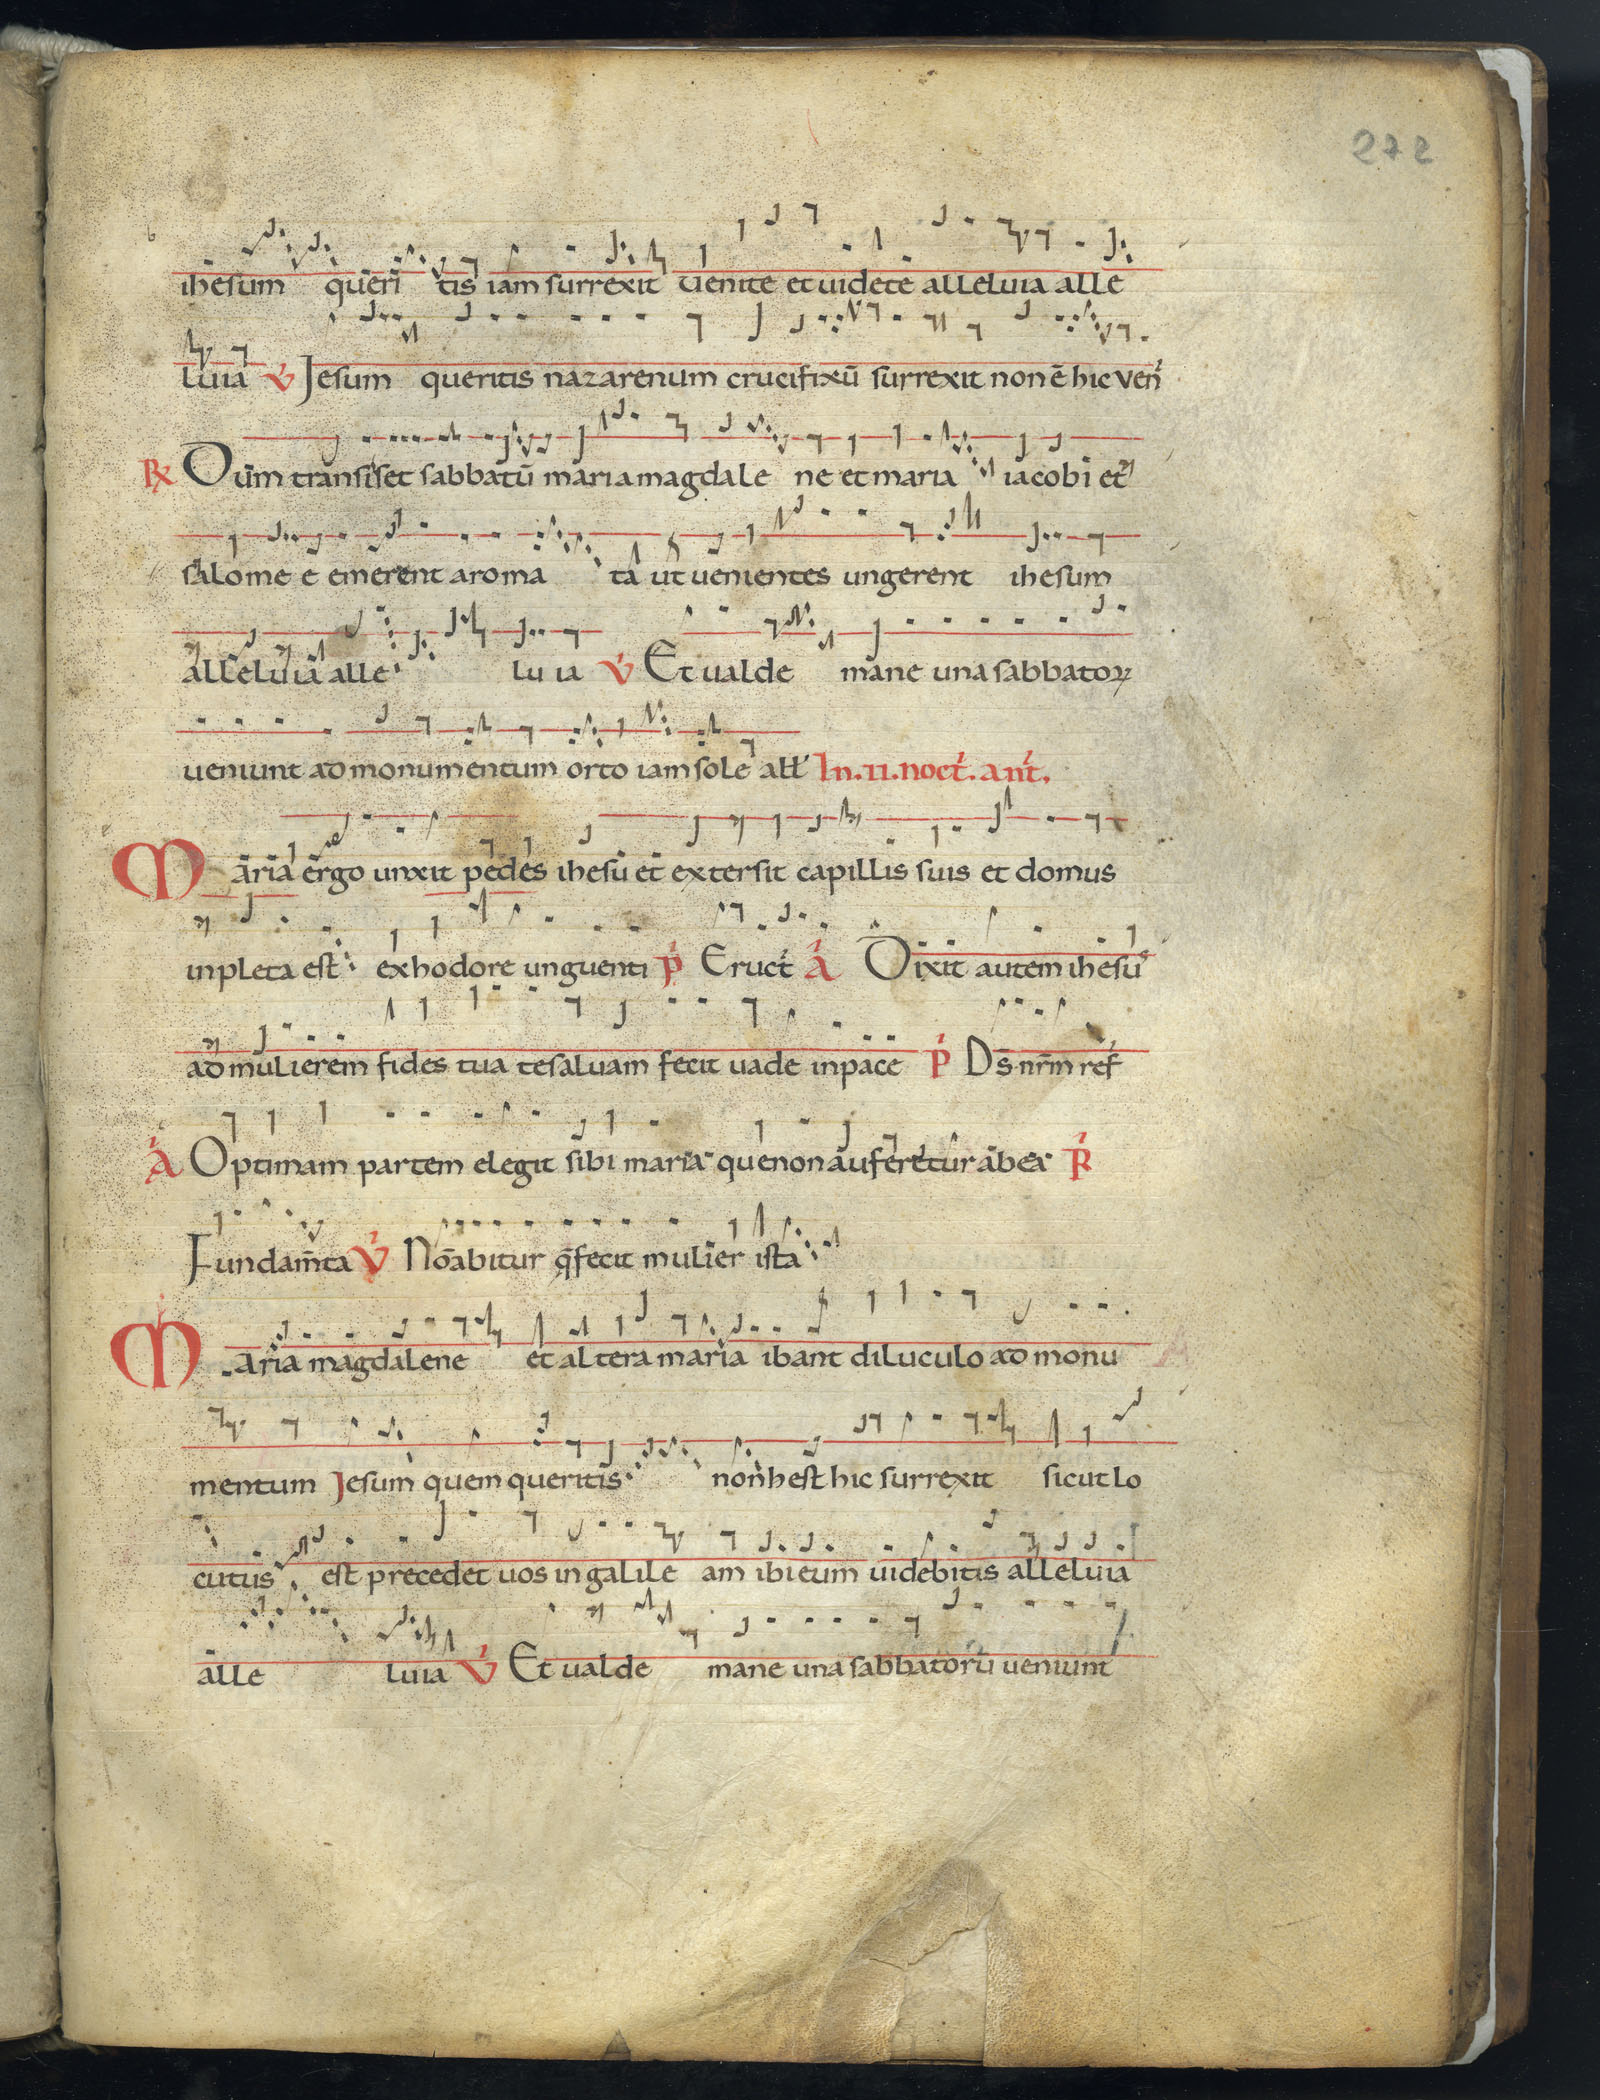 272
ihesum queri tis iam surrexit uenite et uidete alleluia alle
luia V Jesum queritis nazarenum crucifixū surrexit non ē hic ven
R Dum transisset sabbatū maria magdale ne et maria iacobi et
salome e emerent aroma ta ut uenientes ungerent ihesum
alleluia alle lu ia V Et ualde mane una sabbatoꝝ
ueniunt ad monumentum orto iam sole all In .II. noct. ant.
Maria ergo unxit pedes ihesu et extersit capillis suis et domus
inpleta est ex hodore unguenti P Eruct A Dixit autem ihesus
ad mulierem fides tua te saluam fecit uade in pace P Ds nr̄m ref
A Optimam partem elegit sibi maria que non auferetur ab ea P
Fundam̄ta V Nōabitur q̄ fecit mulier ista
Maria magdalene et altera maria ibant diluculo ad monu
mentum Jesum quem queritis non h est hic surrexit sicut lo
cutus est precedet uos in galile am ibi eum uidebitis alleluia
alle luia V Et ualde mane una sabbatorū ueniunt